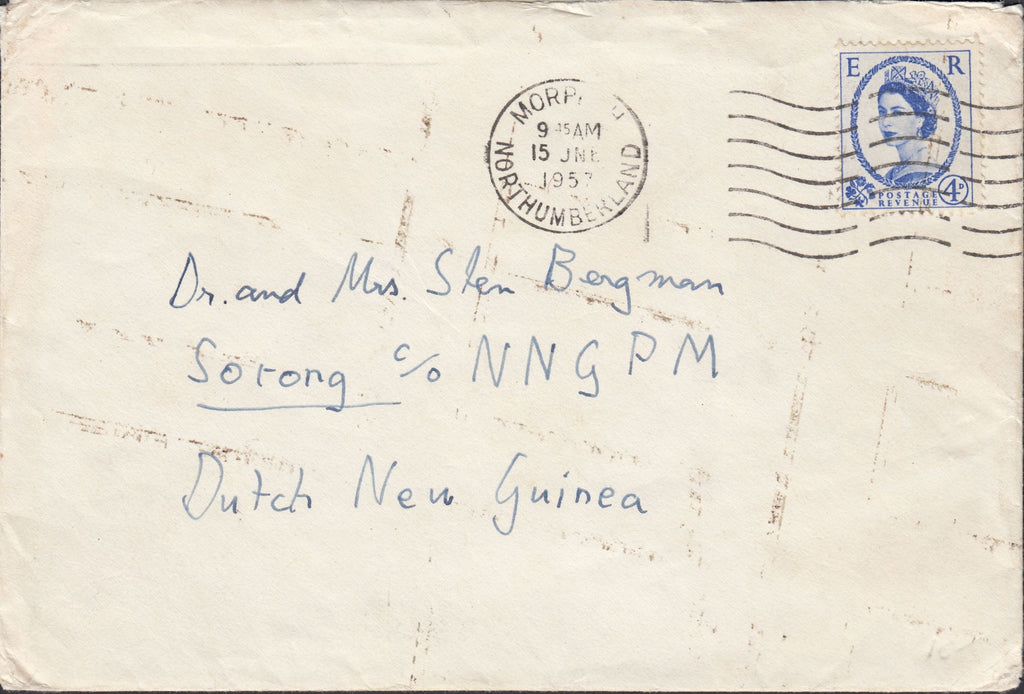 E R
MORP
9 45 AM
15 JNE
195
NORTHUMBERLAND
POSTAGE 4D
REVENUE
Dr. and Mrs. Sten Bergman
Sorong c/o NNGPM
Dutch New Guinea